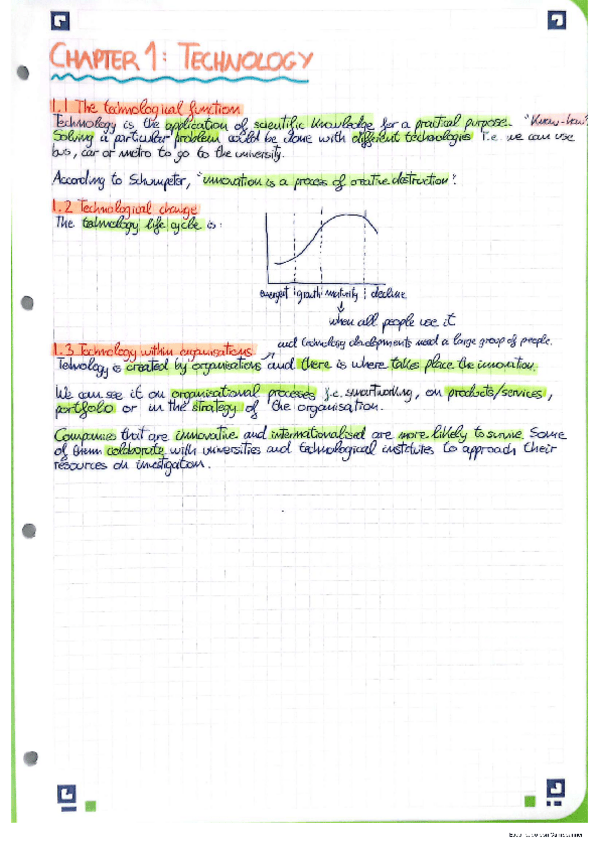 CHAPTER 1: TECHNOLOGY
1.1 The technological function
Technology is the application of scientific knowledge for a practical purpose. "Know-how"
Solving a particular problem could be done with different technologies I.e. we can use
bus, car or metro to go to the university.
According to Schumpeter, "innovation is a process of creative destruction".
1.2 Technological change
The technology life cycle is:
emergent growth maturity decline
when all people use it
and technology developments need a large group of people.
1.3 Technology within organisations
Tehnology is created by organisations and there is where takes place the innovation.
We can see it on organisational processes f.e. smartworking, on products/services,
portfolio or in the strategy of the organisation.
Companies that are innovative and internationalised are more likely to survive. Some
of them colaborate with universities and technological institutes to approach their
resources on investigation.